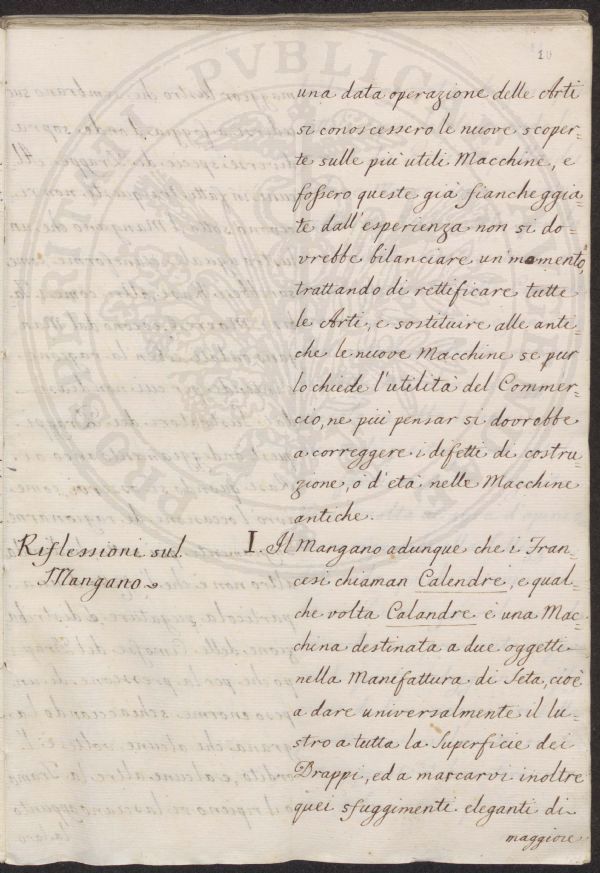 10
una data operazione delle Arti
si conoscessero le nuove scoper=
te sulle più utili Macchine, e
fossero queste già fiancheggia=
te dall'esperienza non si do=
vrebbe bilanciare un momento,
trattando di rettificare tutte
le Arti, e sostituire alle anti=
che le nuove Macchine se pur
lo chiede l'utilità del Commer=
cio, ne più pensar si dovrebbe
a correggere i difetti di costru=
zione, o d'età nelle Macchine
antiche.
Riflessioni sul
Mangano.
I. Il Mangano adunque che i Fran=
cesi chiaman Calendre, e qual=
che volta Calandre è una Mac=
china destinata a due oggetti
nella Manifattura di Seta, cioè
a dare universalmente il lu=
stro a tutta la Superficie dei
Drappi, ed a marcarvi inoltre
quei sfuggimenti eleganti di
maggiore